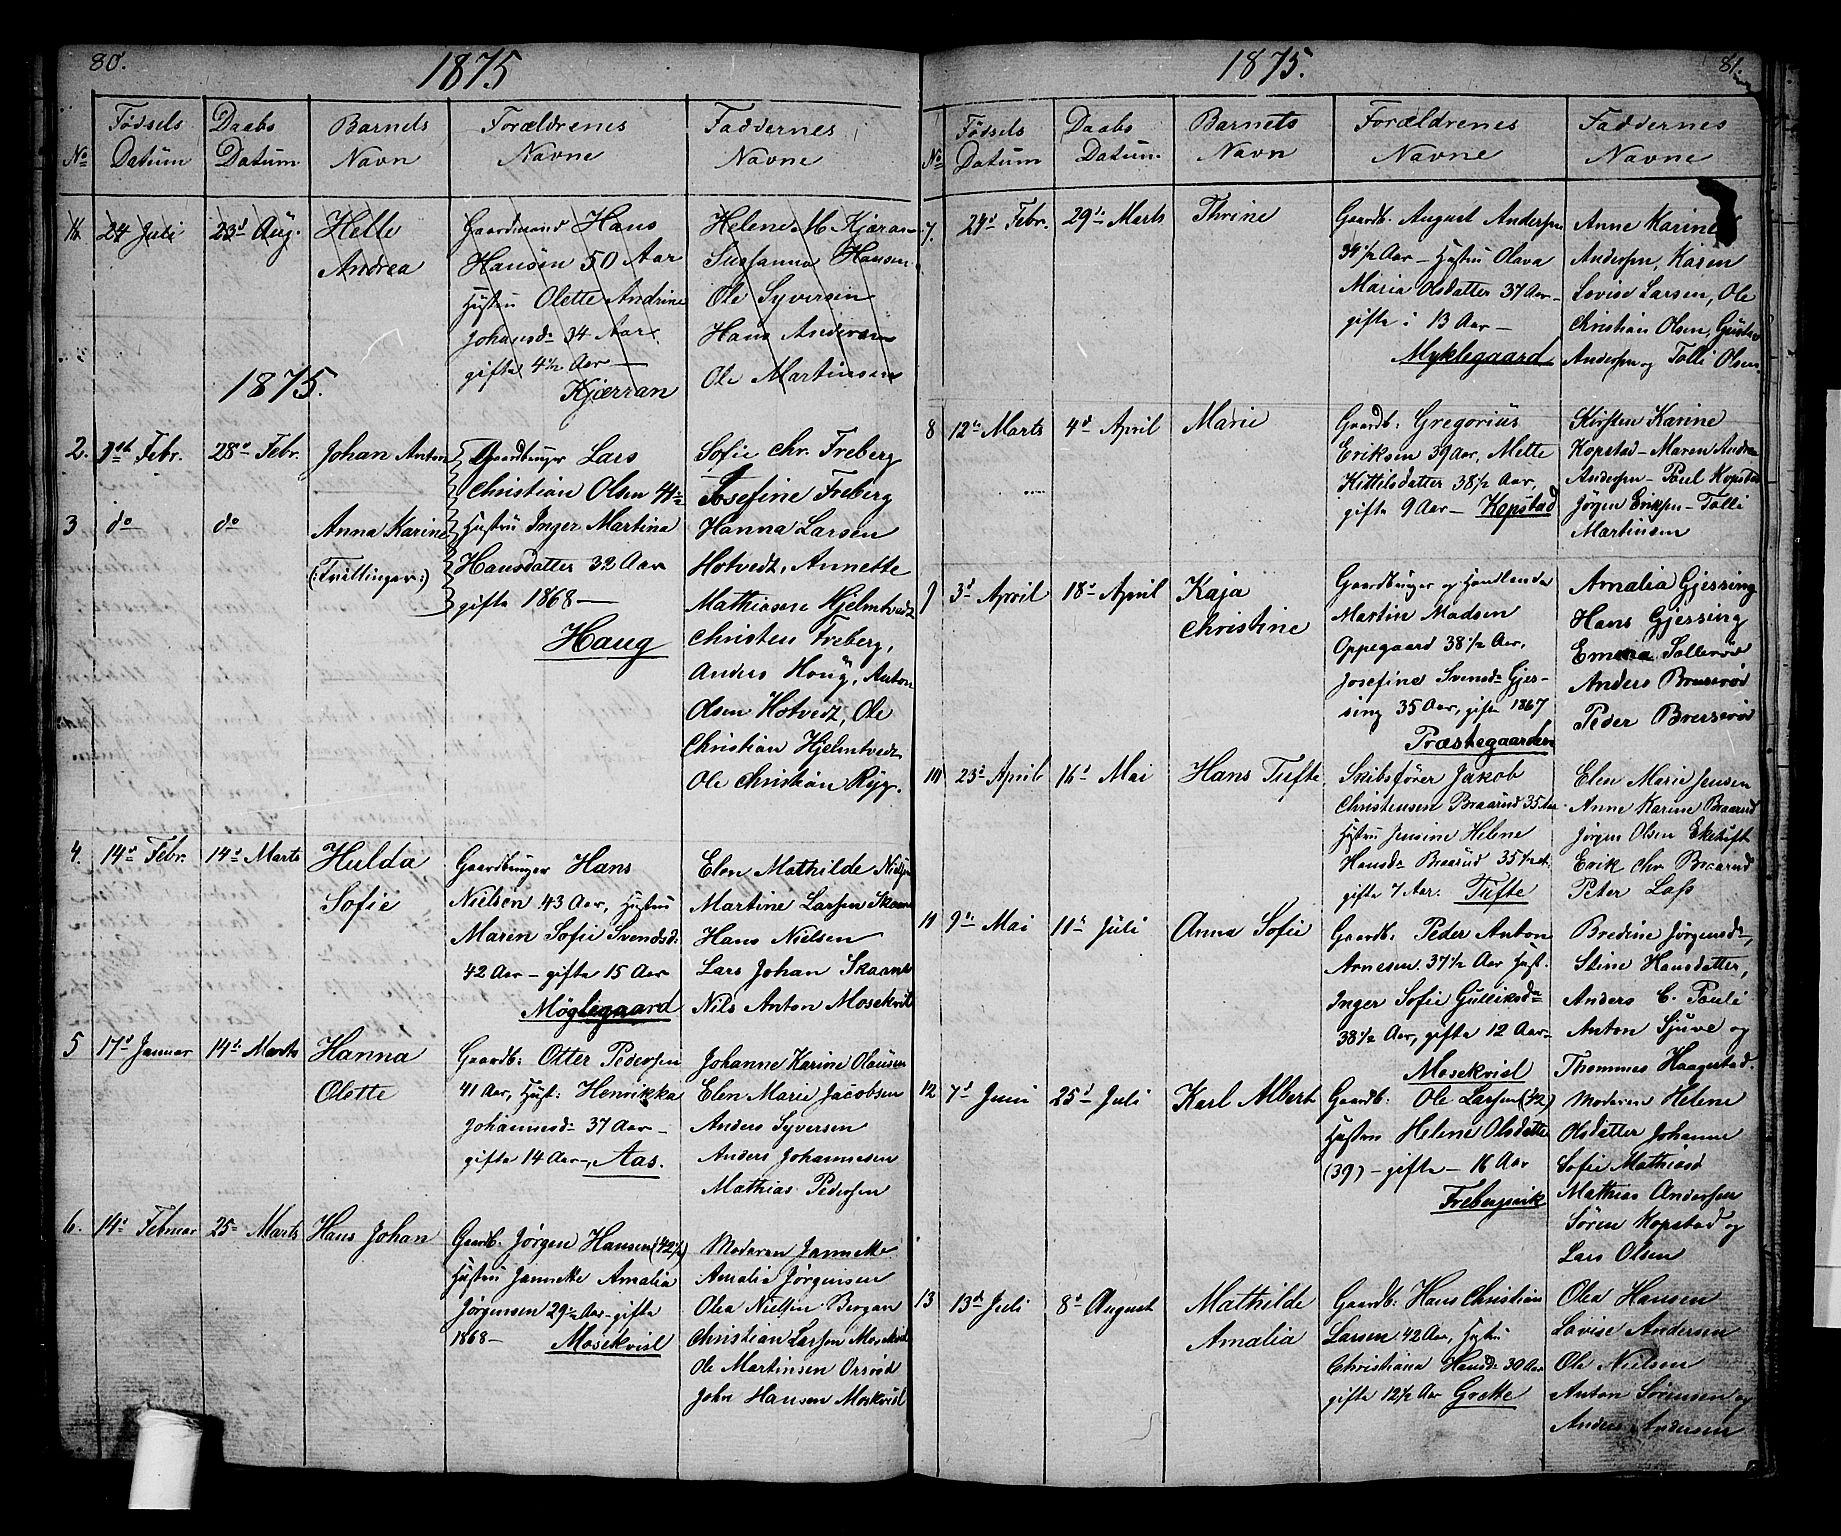 80.
1875
No
Födsels Datum
Daabs Datum
Barnets Navn
Forældrenes Navne
Faddernes Navne
24 Juli
23d Aug.
Helle
Andrea
Gaardmand Hans
Hansen 50 Aar
Hustru Olette Andrine
Johansd- 34 Aar
gifte 4½ Aar —
Kjærran
Helene M. Kjæran
Sussanna Hansen
Ole Syversen
Hans Andersen
Ole Martinsen
1875.
2.
Febr.
28de Febr.
Johan Anton
3
do
do
Anna Karine
(:Tvillinger:)
Gaardbruger Lars
Christian Olsen 44½
Hustru Inger Martina
Hansdatter 32 Aar
gifte 1868 —
Haug
Sofie Chr. Freberg
Josefine Freberg
Hanna Larsen
Hotvedt, Annette
Mathiasen Hjelmtvedt
Christen Freberg,
Anders Houg, Anton
Olsen Hotvedt, Ole
Christian Hjelmtvedt
Ole Christian Ryg.
4.
14d Febr.
14d Marts
Hulda
Sofie
Gaardbruger Hans
Nielsen 43 Aar, Hustru
Maren Sofie Svendsd:
42 Aar – gifte 15 Aar
Møglegaard
Elen Mathilde
Martine Larsen
Hans Nielsen
Lars Johan Skaane
Nils Anton Mosekvil
5
17d Januar
14d Marts
Hanna
Olette
Gaardb: Otter Pedersen
41 Aar, Hust: Henrikka
Johannesd- 37 Aar –
gifte 14 Aar –, Aas.
Johanne Karine
Elen Marie Jacobsen
Anders Syversen
Anders Johannesen
Mathias Pedersen
6.
14d Februar
25- Marts
Hans Johan
Gaardb. Jørgen Hansen (42½)
Hustru Jannekke Amalia
Jørgensen 29½ Aar – gifte
1868 – Mosekvisl
Moderen Jannekke
Amalia Jørgensen
Olea Nielsen Bergan
Christian Larsen
Ole Martinsen Orsrød
John Hansen Moskvisl
1875.
81.
No
Födsels Datum
Daabs Datum.
Barnets Navn
Forældrenes Navne
Faddernes Navne
7.
24d Febr.
29d Marts
Thrine
Gaardb. August Andersen
34½ Aar – Hustru Olava
Maria Olsdatter 37 Aar –
gifte i 13 Aar –
Myklegaard
Anne Karine
Andersen, Karen
Lovise Larsen, Ole
Christian Olsen, Gustav
Andersen og Tolli Olsen.
8
12te Marts
4d April
Marie
Gaardb: Gregorius
Eriksen 39 Aar, Mette
Kittilsdatter 38½ Aar,
gifte 9 Aar – Kopstad
Kirsten Karine
Kopstad – Maren Andrea
Andersen – Paul Kopstad
Jørgen Eriksen – Tolli
Martinsen
9
3d April
18d April
Kaja
Christine
Gaardbruger og Handlende
Martin Madsen
Oppegaard 38½ Aar,
Josefine Svensd- Gjes-
sing 35 Aar, gifte 1867
Præstegaarden
Amalia Gjessing
Hans Gjessing
Emma Sollerød
Anders Brusrød
Peder Brersrød
10
23d April
16d Mai
Hans Tufte
Skibsfører Jakob
Christensen Braarud 35 Aar
Hustru Jensine Helene
Hansd- Braarud 35½ A.
gifte 7 Aar. Tufte
Elen Marie Jensen
Anne Karine Braarud
Jørgen Olsen Eketuft
Erik Chr. Braarud
Peter Lass
11
9d Mai
11d Juli
Anna Sofie
Gaardb: Peder Anton
Arnesen 37½ Aar Hust.
Inger Sofie Gulliksd-
38½ Aar, gifte 12 Aar –
Mosekvisl
Bredine Jørgensd-,
Stine Hansdatter,
Anders C. Pauli
Anton Sjuve og
Thommes Haagestad.
12
7d Juni
25d Juli
Karl Albert
Gaardb: Ole Larsen (42)
Hustru Helene Olsdatter
(39) – gifte – 16 Aar
Frebergsvik
Moderen Helene
Olsdatter Johanne
Sofie Mathiasd
Mathias Andersen
Søren Kopstad og
Lars Olsen
13
13d Juli
8d August
Mathilde
Amalia
Gaardb: Hans Christian
Larsen 42 Aar, Hustru
Christiana Hansd- 30 Aar
gifte 12½ Aar Grette
Olea Hansen
Lovise Andersen
Ole Nielsen
Anton Sørensen og
Anders Andersen